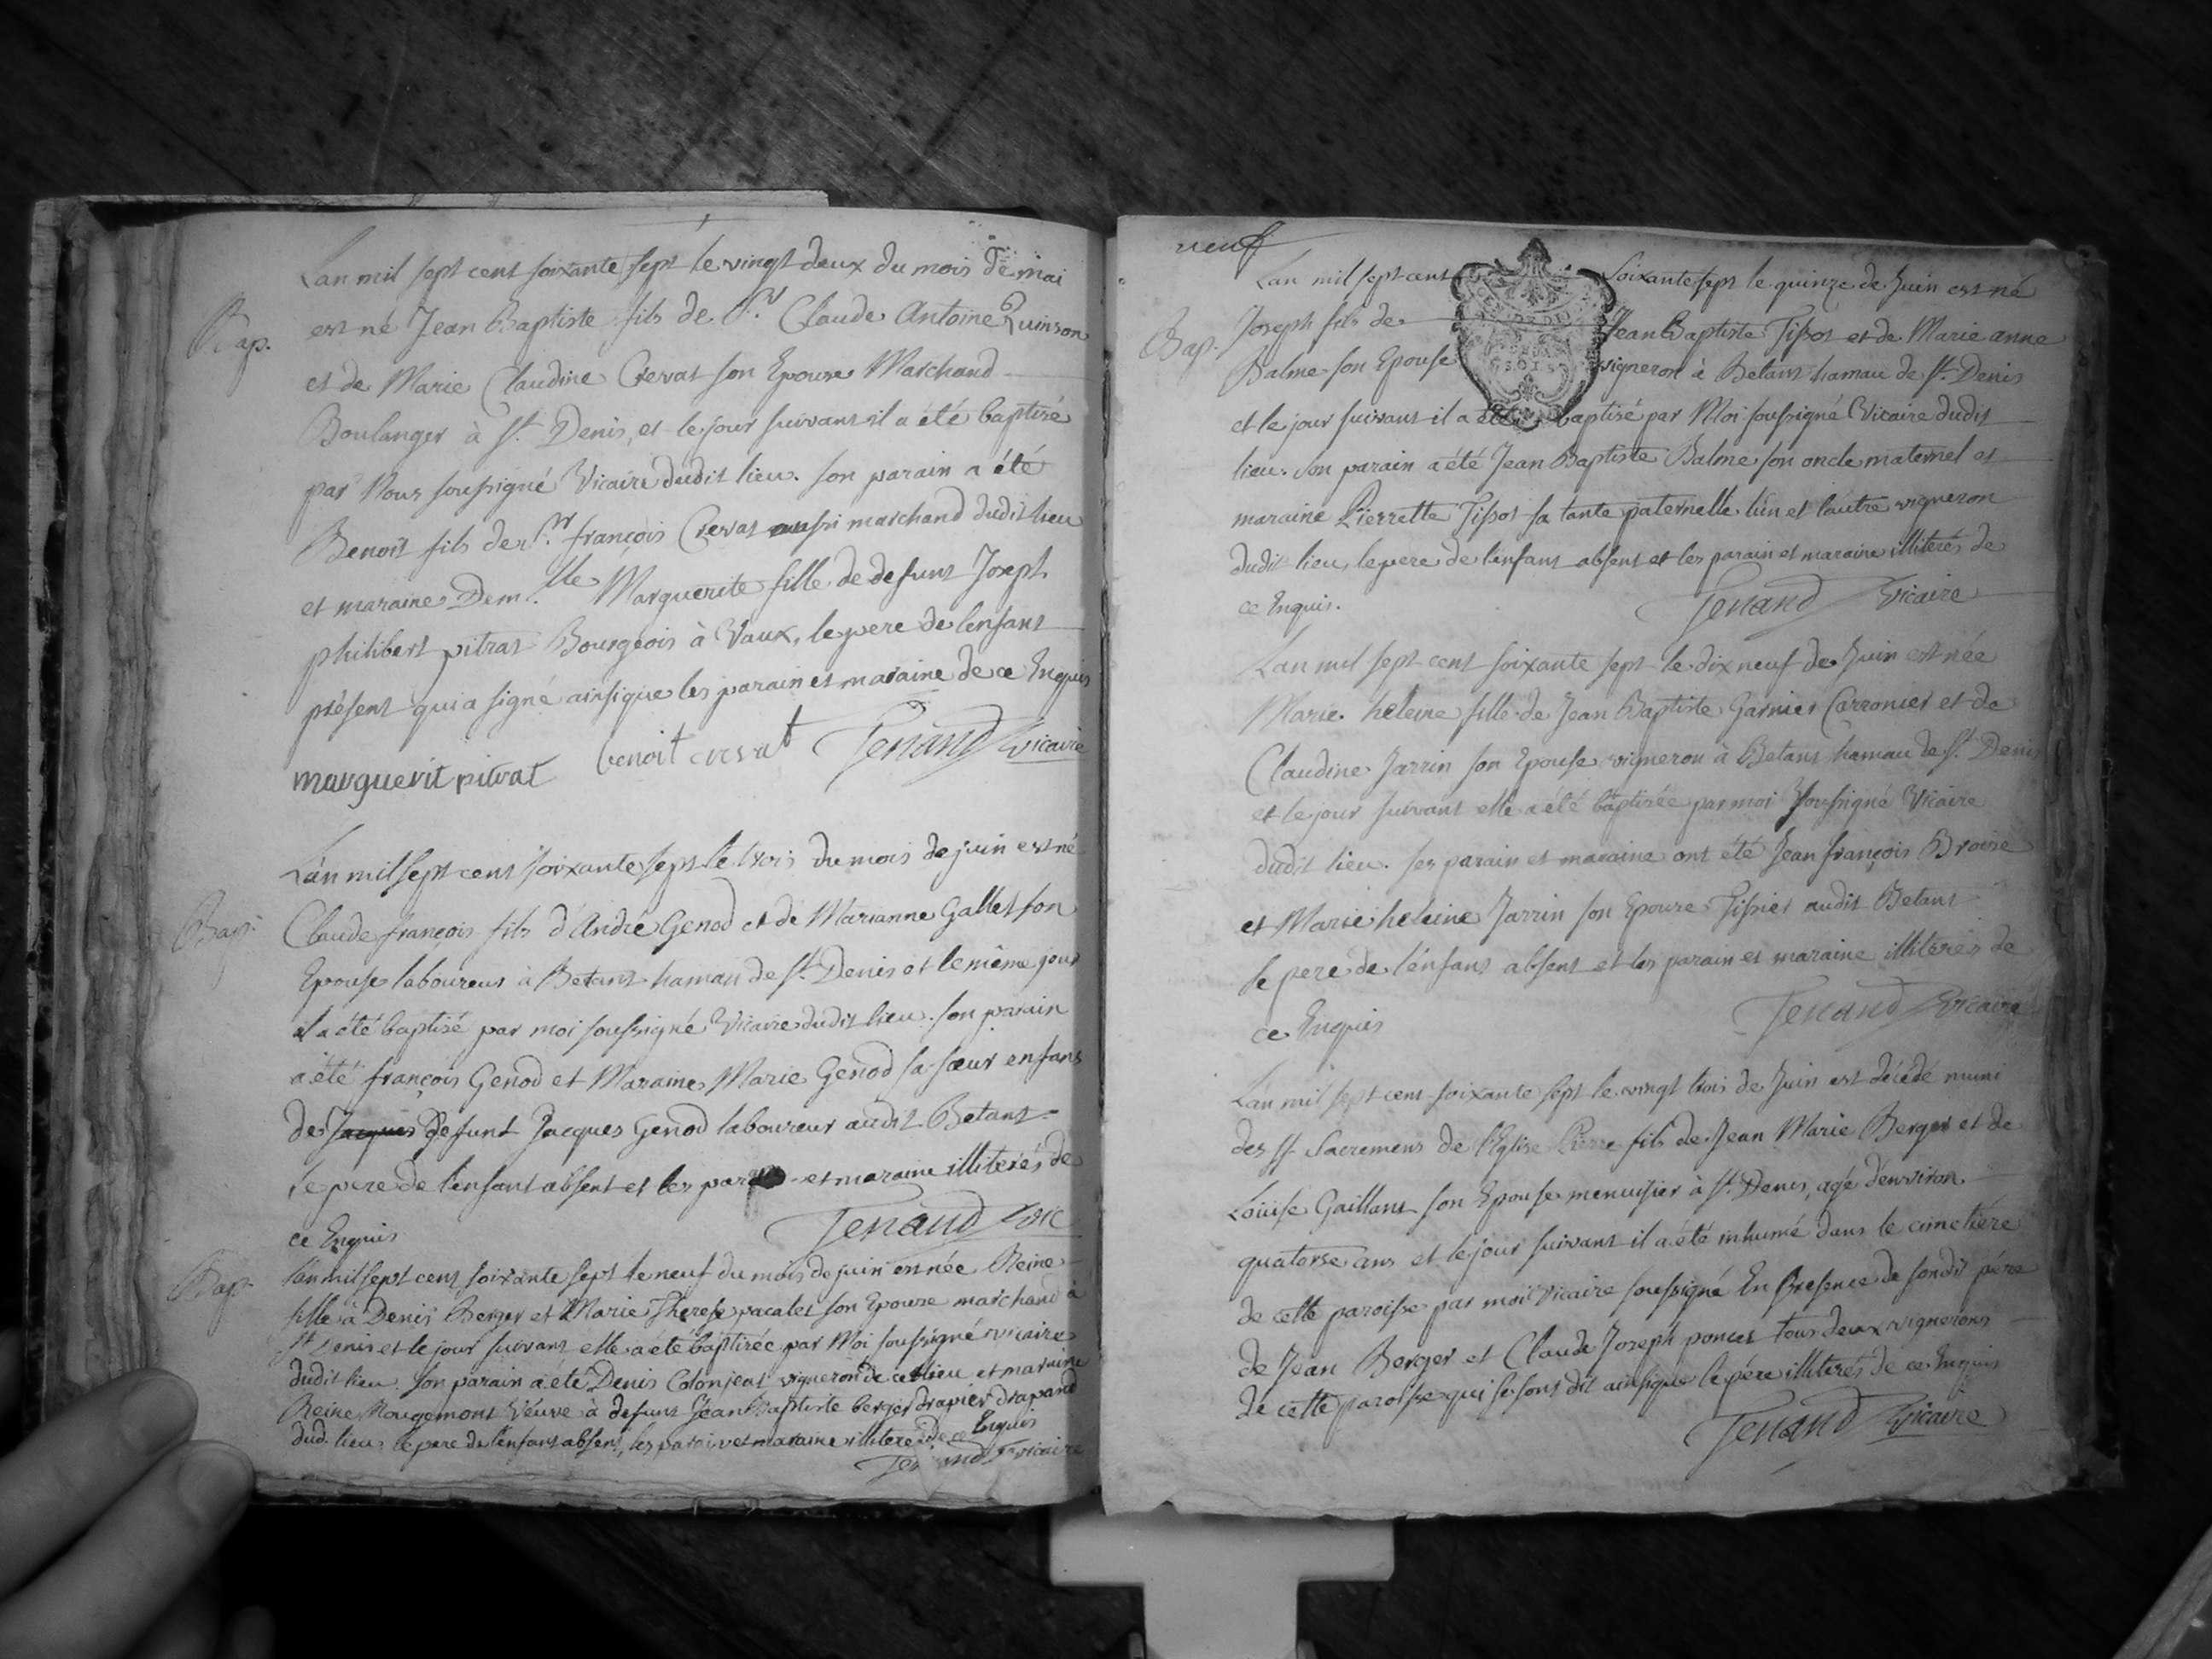 Lan mil sept cent soixante sept le vingt deux du mois de mai
Bap.
est né Jean Baptiste fils de Sr. Claude Antoine Quinson
et de Marie Claudine Crevat son Epouse Marchand
Boulanger à St. Denis, et le jour suivant il a été baptisé
par Nous soussigné Vicaire dudit lieu. son parain a été
Benoit fils de Sr. françois Crevat aussi marchand dudit lieu
et maraine Dem.lle Marguerite fille de defunt Joseph
philibert pitrat Bourgeois à Vaux, le pere de lenfant
présent qui a signé ainsique les parain et maraine de ce Enquis
marguerit pitrat benoit crevat Tenand Vicaire
Lan mil sept cent soixante sept le trois du mois de juin est né
Bap.
Claude françois fils d'André Genod et de Marianne Gallet son
Epouse laboureur à Betant hamau de St. Denis et le même jour
il a été baptisé par moi soussigné Vicaire dudit lieu. son parain
a été françois Genod et Maraine Marie Genod sa sœur enfans
de Jacques defunt Jacques Genod laboureur audit Betant
le pere de lenfant absent et les et maraine illiterés de
ce Enquis Tenand Vic
Bap.
Lan mil sept cent soixante sept le neuf du mois de juin est née Reine
fille à Denis Berger et Marie Therese pacalet son Epouse marchand à
St Denis et le jour suivant elle a été baptisée par Moi soussigné vicaire
dudit lieu son parain a été Denis Colonjeat vigneron de ce lieu et maraine
Reine Rougemont Veuve à defunt Jean Baptiste berger drapier drapand
dud. lieu le pere de lenfant absent, les parain et maraine illiterés de ce Enquis
Tenand vicaire
neuf
Lan mil sept cent soixante sept le quinze de Juin est né
Bap.
Joseph fils de Jean Baptiste Tissot et de Marie anne
Balme son Epouse vigneron à Betant hamau de St. Denis
et le jour suivant il a été baptisé par Moi soussigné Vicaire dudit
lieu. son parain a été Jean Baptiste Balme son oncle maternel et
maraine Pierrette Tissot sa tante paternelle l'un et lautre vigneron
dudit lieu, le pere de lenfant absent et les parain et maraine illiterés de
ce Enquis. Tenand Vicaire
Lan mil sept cent soixante sept le dix neuf de Juin est née
Marie heleine fille de Jean Baptiste Garnier Carronier et de
Claudine Jarrin son Epouse vigneron à Betant hamau de St. Denis
et le jour suivant elle a été baptisée par moi soussigné Vicaire
dudit lieu. ses parain et maraine ont été Jean françois Broise
et Marie heleine Jarrin son Epouse Tissier audit Betant
le pere de lénfant absent et les parain et maraine illiterés de
ce Enquis Tenand Vicaire
Lan mil sept cent soixante sept le vingt trois de Juin est décédé muni
des St Sacremens de l'Eglise Pierre fils de Jean Marie Berger et de
Louise Gaillant son Epouse menuisier à St. Denis, agé denviron
quatorse ans et le jour suivant il a été inhumé dans le cimetiére
de cette paroisse par moi vicaire soussigné En Presence de sondit pére
de Jean Berger et Claude Joseph poncet tous deux vignerons
de cette paroisse qui se sont dit ainsique le pére illiterés de ce Enquis
Tenand Vicaire